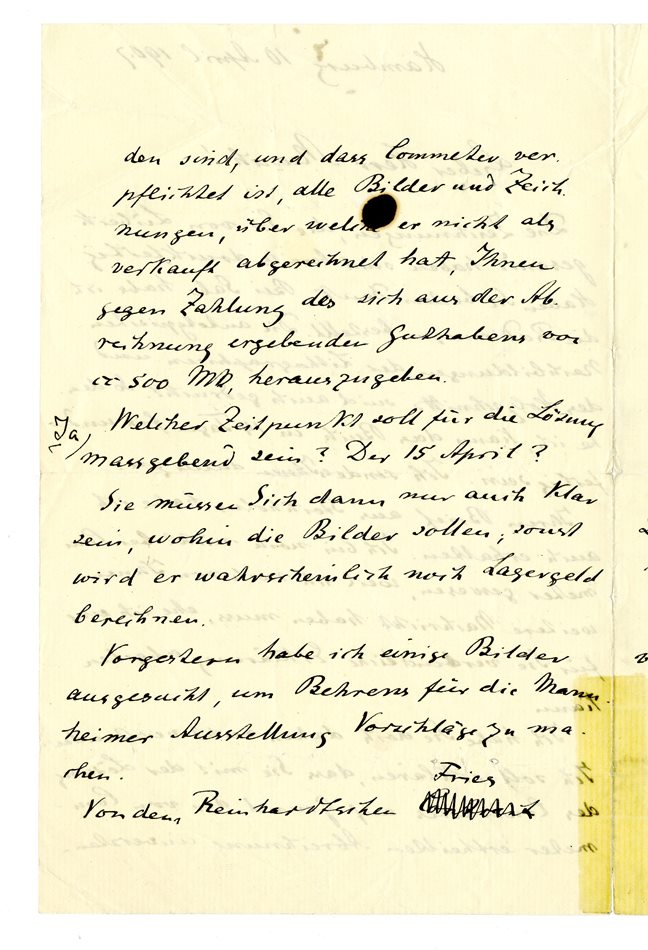 den sind, und dass Commeter ver-
pflichtet ist, alle Bilder und Zeich-
nungen, über welche er nicht als
verkauft abgerechnet hat, Ihnen
gegen Zahlung des sich aus der Ab-
rechnung ergebenden Guthabens von
cc 500 Mk, herauszugeben.
Welcher Zeitpunkt soll für die Lösung
Ja
massgebend sein? Der 15 April?
Sie müssen Sich dann nur auch klar
sein, wohin die Bilder sollen, sonst
wird er wahrscheinlich noch Lagergeld
berechnen.
Vorgestern habe ich einige Bilder
ausgesucht, um Behrens für die Mann-
heimer Ausstellung Vorschläge zu ma-
chen.
Fries
Von dem Reinhardtschen